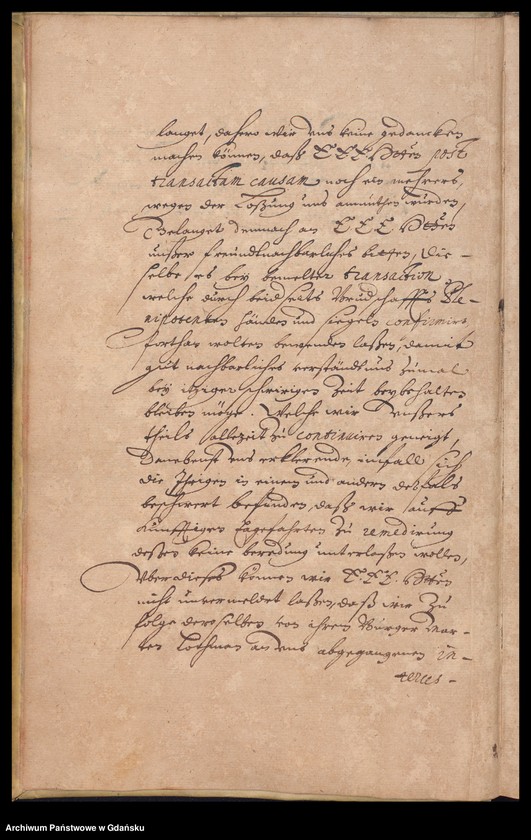 langet, dahero wir uns keine gedancken
machen können, daß E E E Herren post
transactam causam noch ein mehrers
wegen der Loßung uns anmuthen würden,
Gelanget demnach an E. E. E. Herren
unser freundtnachbarliches bitten, die-
selbe es bey bemelter transaction
welche durch beiderseits Ple-
nipotenten händen und siegeln confirmirt
forthan wolten bewenden laßen, damit
gut nachbarliches verständtnus zumal
bey itziger schwirigen Zeit beybehalten
bleiben möge. Welche wir unsers
theils allezeit zu continuiren geneigt,
Danebenst uns erklerende, imfall sich
die Ihrigen in einem und andern deßfals
beschwert befinden, daß wir auff
künfftigen Tagefahrten zu remedirung
deßen keine beredung unterlaßen wollen,
Uber dieses können wir E. E. E. Herren
nicht unvermeldet laßen, daß wir zu
folge derselben von ihrem Bürger Mar-
ten Lothmen an uns abgegangenen in-
terces-
Archiwum Państwowe w Gdańsku